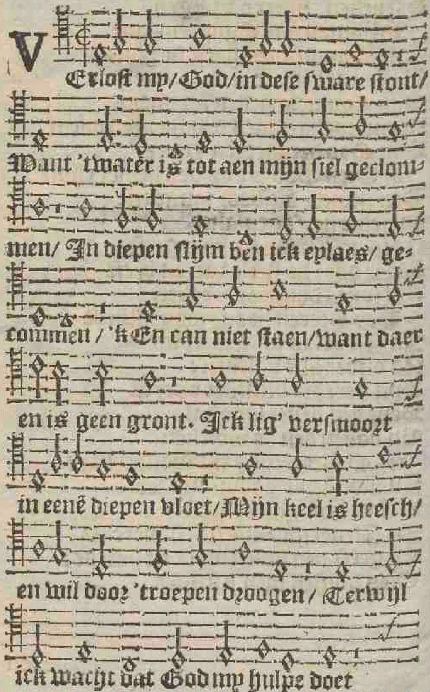 VErlost my/God/in dese sware stont/
Want 'twater is tot aen mijn siel geclom-
men/ In diepen slijm ben ick eylaes/ ge-
commen/'k En can niet staen/want daer
en is geen gront. Ick lig' versmoort
in eenē diepen vloet/Mijn keel is heesch/
en wil door 'troepen droogen/ Terwijl
ick wacht dat God my hulpe doet